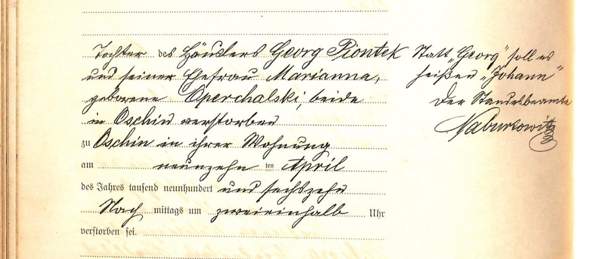 Tochter des Häuslers Georg Piontek
und seiner Ehefrau Marianna,
geborene Operchalski, beide
in Oschin verstorben
zu Oschin in ihrer Wohnung
am neunzehn ten April
des Jahres tausend neunhundert und sechszehn
Nach mittags um zweieinhalb Uhr
verstorben sei.
Statt „Georg" soll es
heißen „Johann"
Der Standesbeamte